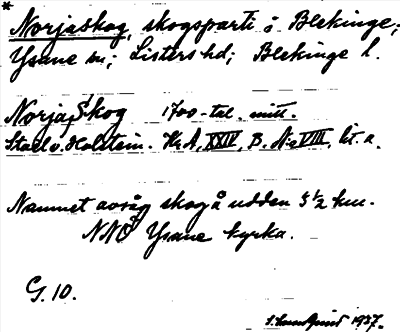 * Norjaskog, skogsparti i Blekinge;
Ysane sn; Listers hd; Blekinge l.
Norja Skog 1700-tal. mitt.
Stael v. Holstein. Kr A, XXIV, B. No VIII, lt. a.
Namnet avsåg skog å udden 3 1/2 km.
NNÖ Ysane kyrka.
G. 10.
1937.